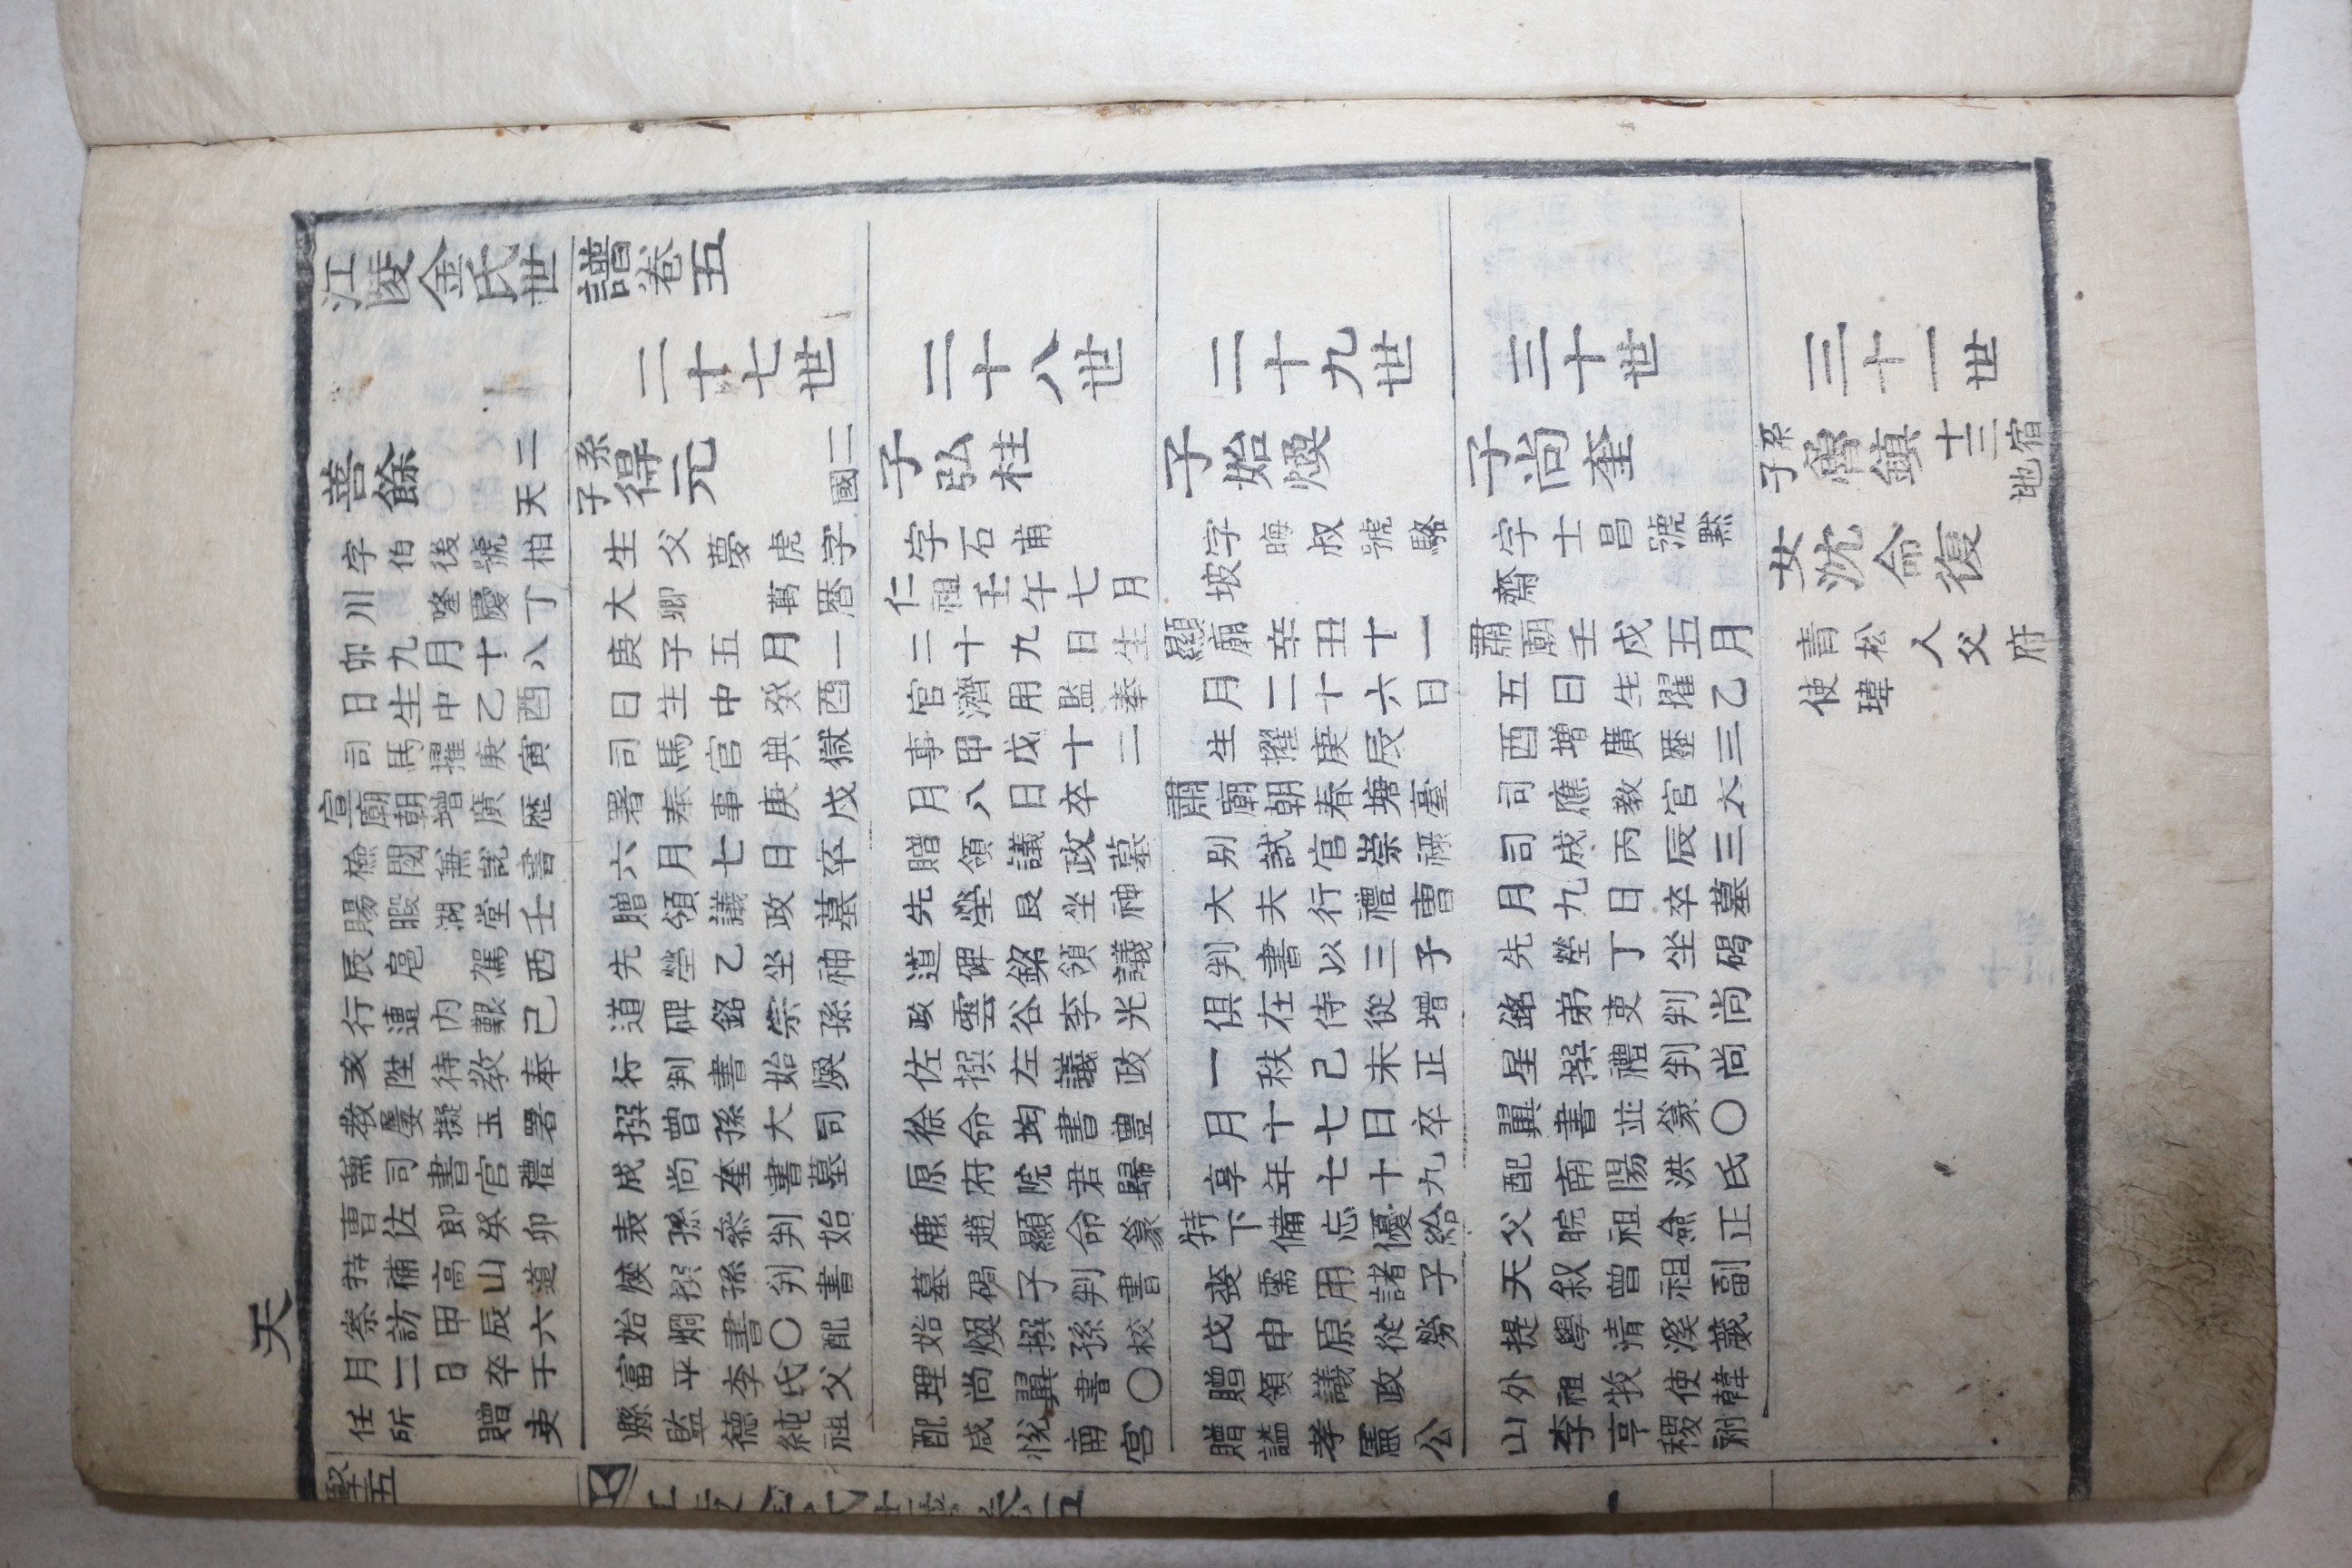 天
江陵金氏世譜卷五
善餘
二
天
字伯後號柏
川 隆慶丁
卯九月十八
日生中乙酉
司馬擢庚寅
宣廟朝增廣歷
檢閱兼說書
賜暇湖堂壬
辰扈 駕西
行遭內艱己
亥陞待敎奉
敎屢擬玉署
兼司書官禮
曹佐郞癸卯
特補高山道
察訪甲辰六
月二日卒于
任所 贈吏
二十七世
系子得元
二
國
生父夢虎字
大卿 萬曆
庚子五月一
日生中癸酉
司馬官典獄
署奉事庚戌
六月七日卒
贈領議政墓
先塋乙坐神
道碑銘宗孫
行判書始煥
撰曾孫大司
成尙奎書墓
表孫叅判始
煐撰孫判書
始烱書〇配
富平李氏父
縣監德純祖
二十八世
子弘柱
字石甫
仁祖壬午七月
二十九日生
官濟用監奉
事甲戌十二
月八日卒
贈領議政墓
先塋艮坐神
道碑銘領議
政雲谷李光
佐撰左議政
徐命均書豊
原府院君歸
鹿趙顯命篆
墓碣子判書
始煥撰孫校
理尙翼書〇
配咸悅南宮
二十九世
子始煥
字晦叔號駱
坡
顯廟辛丑十一
月二十六日
生擢庚辰
肅廟朝春塘臺
別試官崇祿
大夫行禮曹
判書以三子
俱在侍從增
一秩己未正
月十七日卒
享年七十九
特下備忘優給
喪需用諸子
戊申原從勞
贈領議政
贈謚孝憲公
三十世
子尙奎
字士昌號默
齋
肅廟壬戌五月
五日生擢乙
酉增廣歷三
司應敎官大
司成丙辰三
月九日卒墓
先塋丁坐碣
銘弟吏判尙
星撰禮判尙
翼書並篆〇
配南陽洪氏
父晥祖僉正
天叙曾祖副
提學淸溪葳
外祖牧使韓
山李亨稷祔
三十一世
系子魯鎭
十三
宿
地
女沈命復
靑松人父府
使瑋
江陵金氏世譜卷五
一